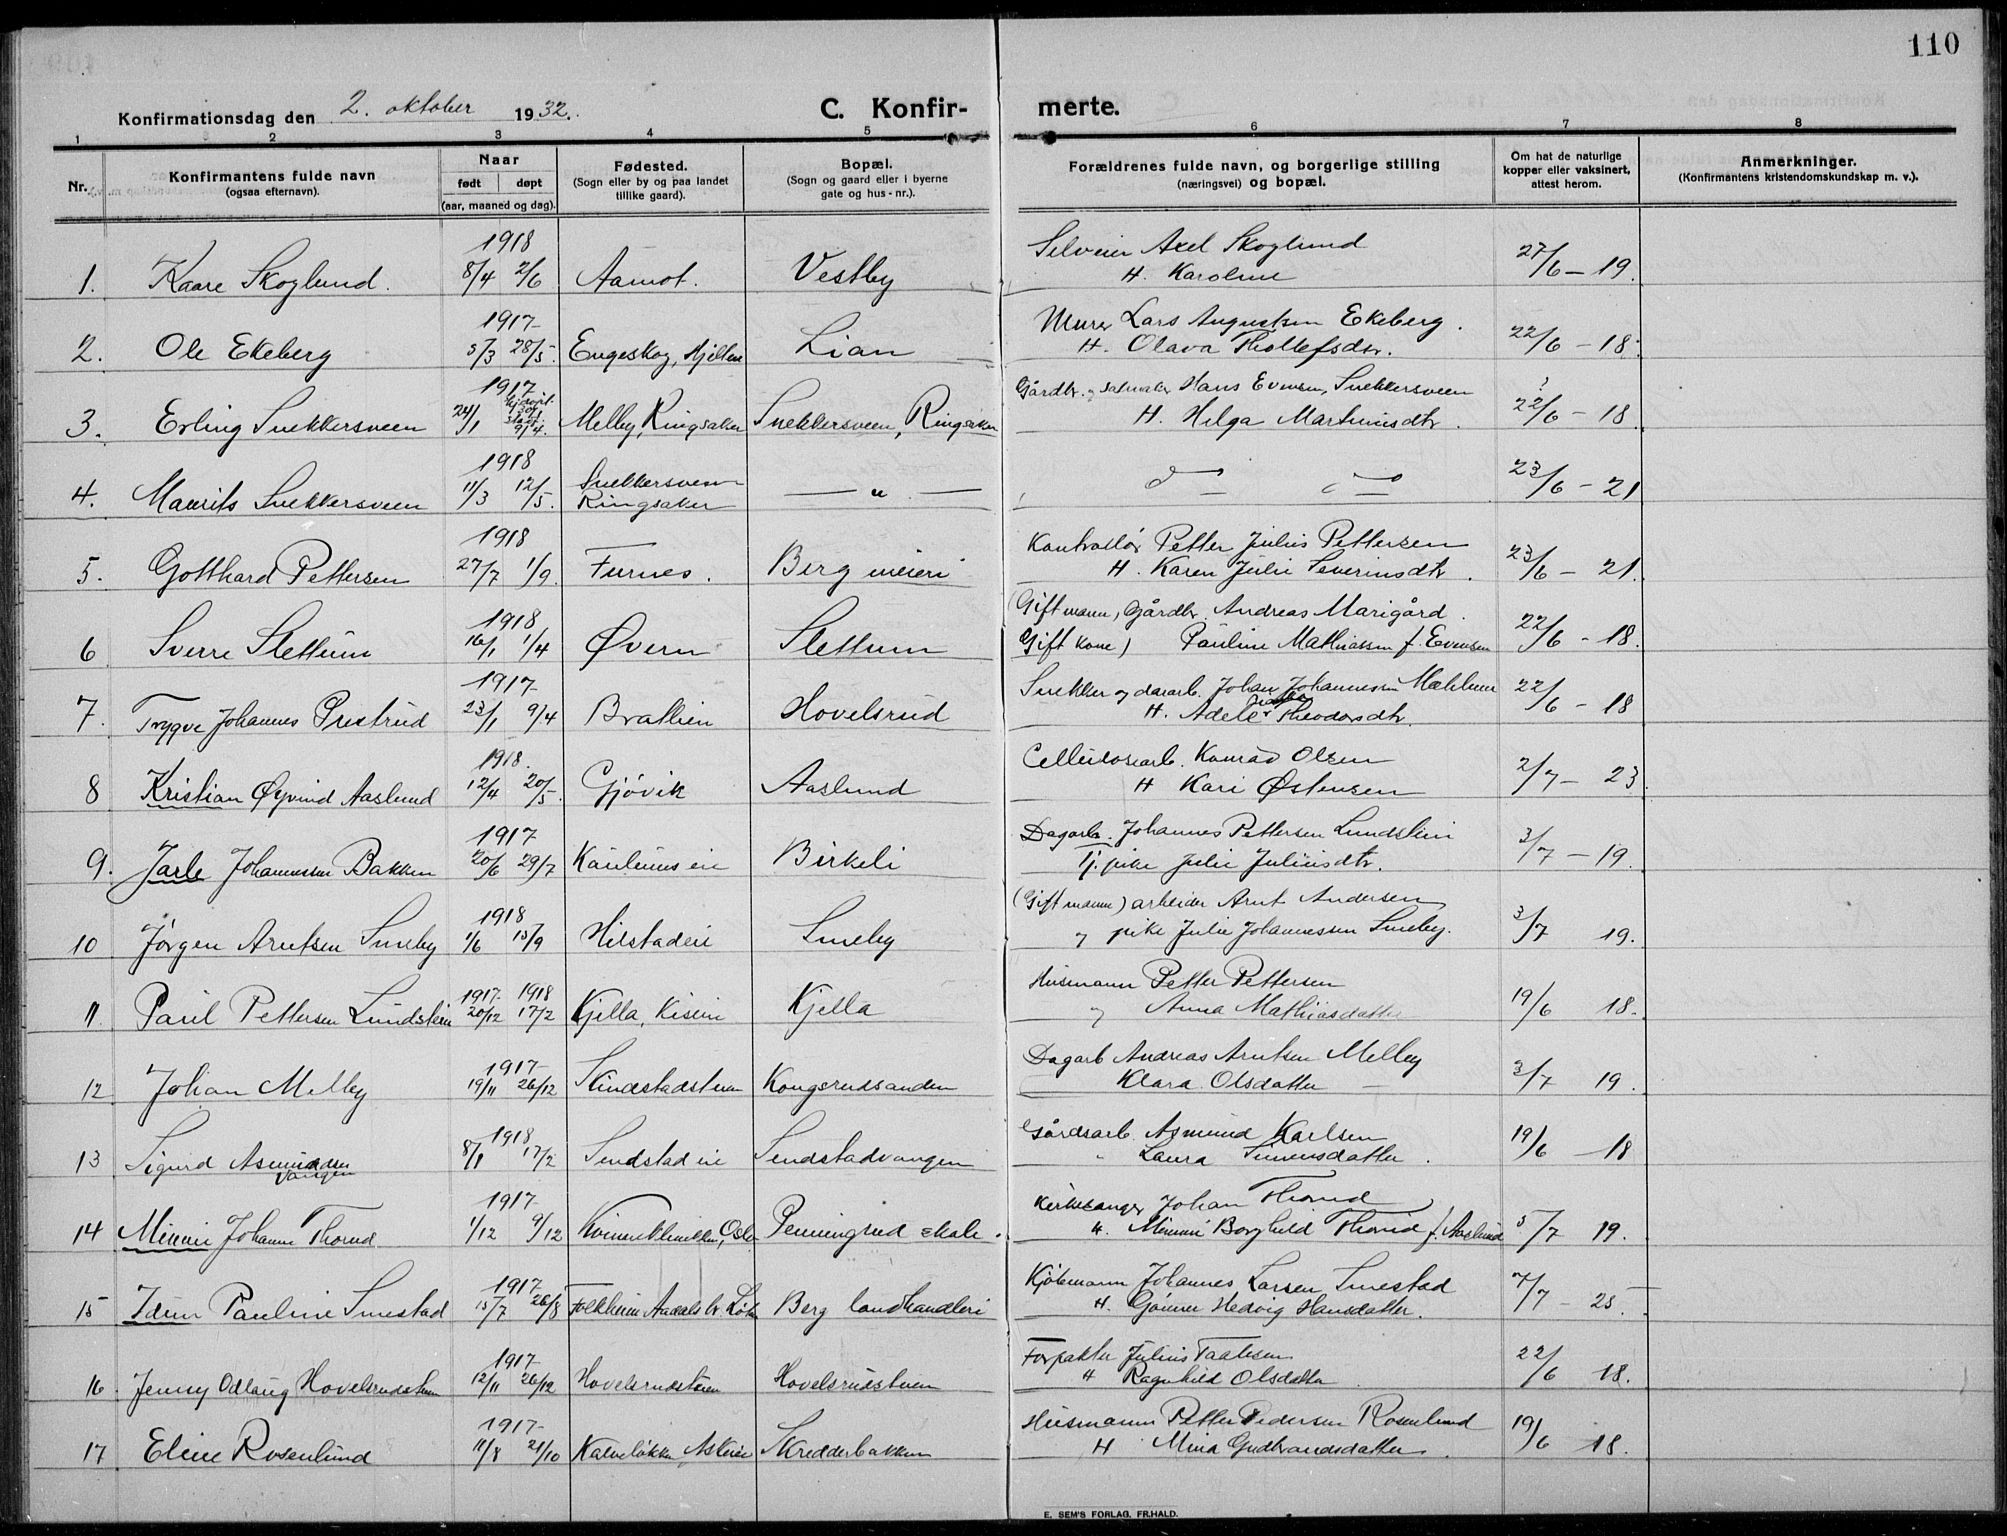 110
Konfirmationsdag den 2. oktober 1932.
C. Konfir-merte.
1 2 3 4 5 6 7 8
Nr.
Konfirmantens fulde navn
(ogsaa efternavn).
Naar
født døpt
(aar, maaned og dag).
Fødested.
(Sogn eller by og paa landet
tillike gaard).
Bopæl.
(Sogn og gaard eller i byerne
gate og hus-nr.).
Forældrenes fulde navn, og borgerlige stilling
(næringsvei) og bopæl.
Om hat de naturlige
kopper eller vaksinert,
attest herom.
Anmerkninger.
(Konfirmantens kristendomskundskap m. v.).
1918 Selveier Axel Skoglund
1. Kaare Skoglund. 8/4 2/6 Aamot. Vestby H. Karoline 27/6 – 19.
1917 Murer Lars Augustsen Ekeberg.
2. Ole Ekeberg 5/3 28/5. Engeskog, Hjellum Lian H. Olava Thollefsdtr. 22/6 – 18.
1917 Gårdbr. og salmaker Hans Evensen, Snekkersveen
3. Erling Snekkersveen 24/1 9/4. Melby, Ringsaker Snekkersveen, Ringsaker H. Helga Martinusdtr. 22/6 – 18.
1918 Snekkersveen
4. Maurits Snekkersveen 11/3 12/5. Ringsaker — " — 23/6 – 21
1918 Kontrollør Petter Julius Pettersen
5. Gotthard Pettersen 27/7 1/9. Furnes. Berg meieri H. Karen Julie Severinsdtr. 23/6 – 21.
1918 (Gift mann, Gårdbr. Andreas Marigård.
6 Sverre Slettum 16/1 1/4 Øvern Slettum Gift kone) Pauline Mathiassen f. Evensen 22/6 – 18.
1917 Snekker og dagarb. Johan Johannessen Mælum
7. Trygve Johannes Prestrud 23/1 9/4 Brattlien Hovelsrud H. Adele Theodorsdtr. 22/6 – 18
1918. Cellulosearb. Konrad Olsen
8 Kristian Øyvind Aaslund 12/4 20/5. Gjøvik Aaslund H Kari Østensen 2/7 – 23
1917 Dagarb. Johannes Pettersen Lundstein
9. Jarle Johannessen Bakken 20/6 29/7 Kaulumseie Birkeli Tj. pike Julie Juliusdtr. 3/7 – 19.
1918 (Gift mann) arbeider Arnt Andersen
10 Jørgen Arntsen Smeby 1/6 15/9 Hilstadeie Smeby og pike Julie Johannessen Smeby. 3/7 19.
1917 1918 Husmann Petter Pettersen
11. Paul Pettersen Lundstein 20/12 17/2 Kjella, Kisein Kjella og Anna Mathiasdatter 19/6 18.
1917 Dagarb Andreas Arntsen Melby
12. Johan Melby 19/11 26/12 Skindstadstuen Kongsrudsanden Klara Olsdatter 3/7 19.
1918 Gårdsarb. Asmund Karlsen
13 Sigurd Asmundsen 8/1 17/2 Sendstadeie Sendstadvangen " Laura Simensdatter. 19/6 18
Vangen
1917 Kirkesanger Johan Thorud
14 Minnie Johanne Thorud 1/12 9/12 Kvinneklinikken, Oslo Penningrud skole. H. Minnie Borghild Thorud f. Aaslund 5/7 19.
1917 Kjøbmann Johannes Larsen Smestad
15 Idun Pauline Smestad 15/7 26/8 Folkheim Aadals br. Løten Berg landhandleri H. Gunner Hedvig Hansdatter. 7/7 – 25.
1917 Forpakter Julius Taalesen
16. Jenny Odlaug Hovelsrudstuen 12/11 26/12 Hovelsrudstuen Hovelsrudstuen H Ragnhild Olsdatter 22/6 18.
1917 Husmann Petter Pedersen Rosenlund
17 Eline Rosenlund 11/8 21/10 Kalveløkka, Askeie Skredderbakken H Mina Gudbrandsdatter. 19/6 18.
E. SEM'S FORLAG, FR.HALD.